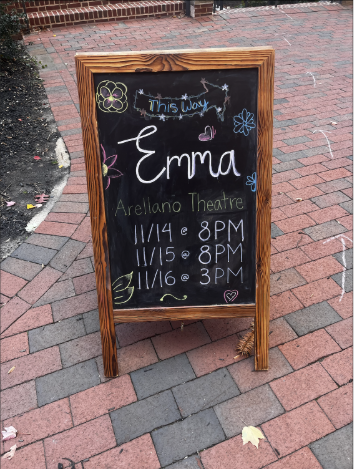 This Way
Emma
Arellano Theatre
11/14 @ 8PM
11/15 @ 8PM
11/16 @ 3PM